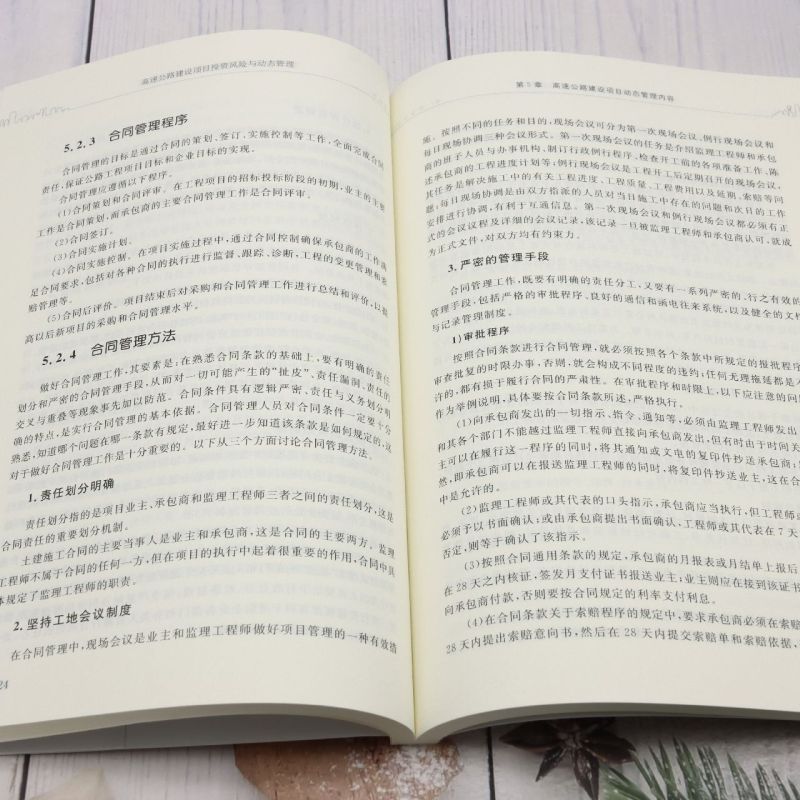 高速公路建设项目投资风险与动态管理
5.2.3 合同管理程序
合同管理的目标是通过合同的策划、签订、实施控制等工作,全面完成合同
责任,保证公路工程项目目标和企业目标的实现。
合同管理应遵循以下程序。
(1)合同策划和合同评审。在工程项目的招标投标阶段的初期,业主的主要
工作是合同策划,而承包商的主要合同管理工作是合同评审。
(2)合同签订。
(3)合同实施计划。
(4)合同实施控制。在项目实施过程中,通过合同控制确保承包商的工作满
足合同要求,包括对各种合同的执行进行监督、跟踪、诊断,工程的变更管理和索
赔管理等。
(5)合同后评价。项目结束后对采购和合同管理工作进行总结和评价,以提
高以后新项目的采购和合同管理水平。
5.2.4 合同管理方法
做好合同管理工作,其要素是:在熟悉合同条款的基础上,要有明确的责任
划分和严密的合同管理手段,从而对一切可能产生的“扯皮”、责任漏洞、责任的
交叉与重叠等现象事先加以防范。合同条件具有逻辑严密、责任与义务划分明
确的特点,是实行合同管理的基本依据。合同管理人员对合同条件一定要十分
熟悉,知道哪个问题在哪一条款有规定,最好进一步知道该条款是如何规定的,这
对于做好合同管理工作是十分重要的。以下从三个方面讨论合同管理方法。
1.责任划分明确
责任划分指的是项目业主、承包商和监理工程师三者之间的责任划分,这是
合同责任的重要划分机制。
土建施工合同的主要当事人是业主和承包商,这是合同的主要两方。监理
工程师不属于合同的任何一方,但在项目的执行中起着很重要的作用,合同中具
体规定了监理工程师的职责。
2.坚持工地会议制度
在合同管理中,现场会议是业主和监理工程师做好项目管理的一种有效措
24
第5章 高速公路建设项目动态管理内容
施。按照不同的任务和目的,现场会议可分为第一次现场会议、例行现场会议和
每日现场协调三种会议形式。第一次现场会议的任务是介绍监理工程师和承包
商的班子人员与办事机构、制订行政例行程序、检查开工前的各项准备工作、陈
述承包商的工程进度计划等;例行现场会议是工程开工后定期召开的现场会议,
其任务是解决施工中的有关工程进度、工程质量、工程费用以及延期、索赔等问
题;每日现场协调是由双方指派的人员对当日施工中存在的问题和次日的工作
安排进行协调,有利于互通信息。第一次现场会议和例行现场会议都必须有正
式的会议议程及详细的会议记录,该记录一旦被监理工程师和承包商认可,就成
为正式文件,对双方均有约束力。
3.严密的管理手段
合同管理工作,既要有明确的责任分工,又要有一系列严密的、行之有效的
管理手段,包括严格的审批程序、良好的通信和函电往来系统,以及健全的文档
与记录管理制度。
1)审批程序
按照合同条款进行合同管理,就必须按照各个条款中所规定的报批程序
审查批复的时限办事,否则,就会构成不同程度的违约,任何无理拖延都是不
许的,都有损于履行合同的严肃性。在审批程序和时限上,以下应注意的问题
作为举例说明,具体要按合同条款所述,严格执行。
(1)向承包商发出的一切指示、指令、通知等,必须由监理工程师发出
和其各个部门不能越过监理工程师直接向承包商发出,但有时由于时间关
主可以在履行这一程序的同时,将其通知或文电的复印件抄送承包商;
然,即承包商可以在报送监理工程师的同时,将复印件抄送业主,这在合
中是允许的。
(2)监理工程师或其代表的口头指示,承包商应当执行,但工程师或
必须予以书面确认;或由承包商提出书面确认,工程师或其代表在7天
否定,则等于确认了该指示。
(3)按照合同通用条款的规定,承包商的月报表或月结单上报后
在28天之内核证,签发月支付证书报送业主;业主则应在接到该证书
向承包商付款,否则要按合同规定的利率支付利息。
(4)在合同条款关于索赔程序的规定中,要求承包商必须在索赔
28天内提出索赔意向书,然后在28天内提交索赔单和索赔依据,